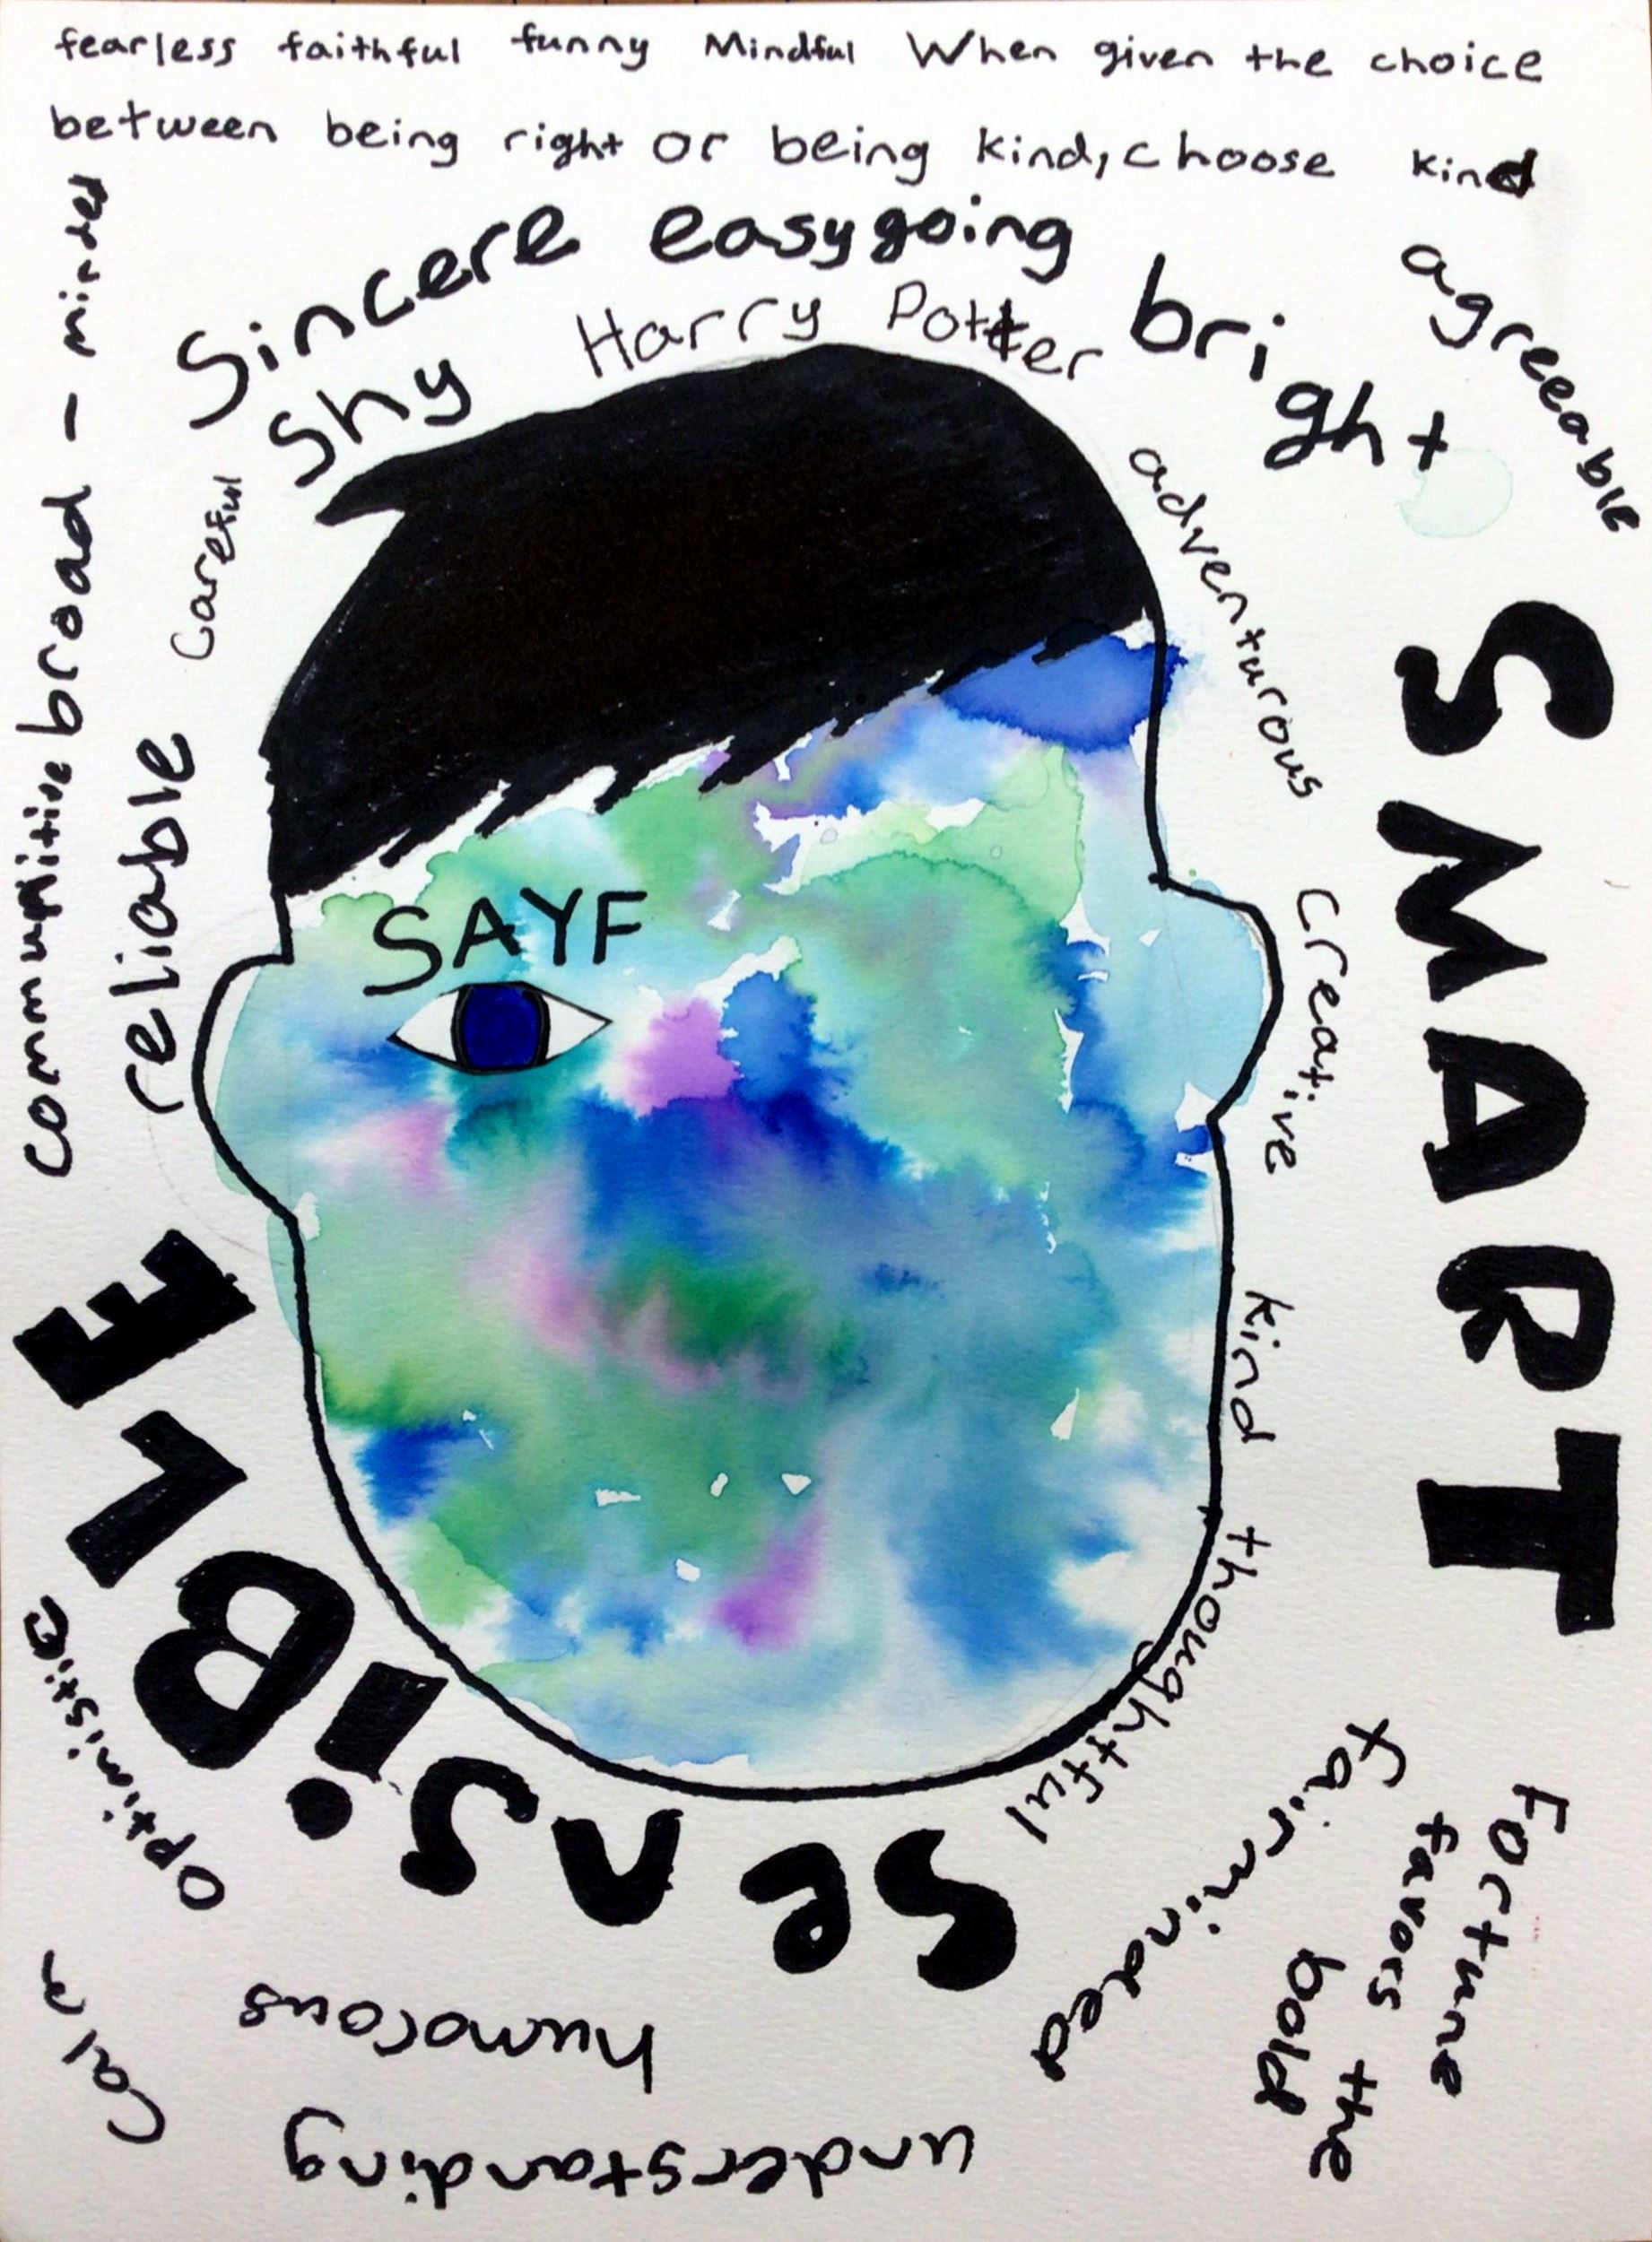 fearless faithful funny Mindful When given the choice
between being right or being kind, choose kind
Sincere easygoing bright agreeable
Shy Harry Potter
adventurous
SMART
creative
kind thoughtful
Fortune
favors the
bold
fairminded
SeNSiBLE
humorous
understanding
Calm
Optimistic
reliable careful
broad - minded
SAYF